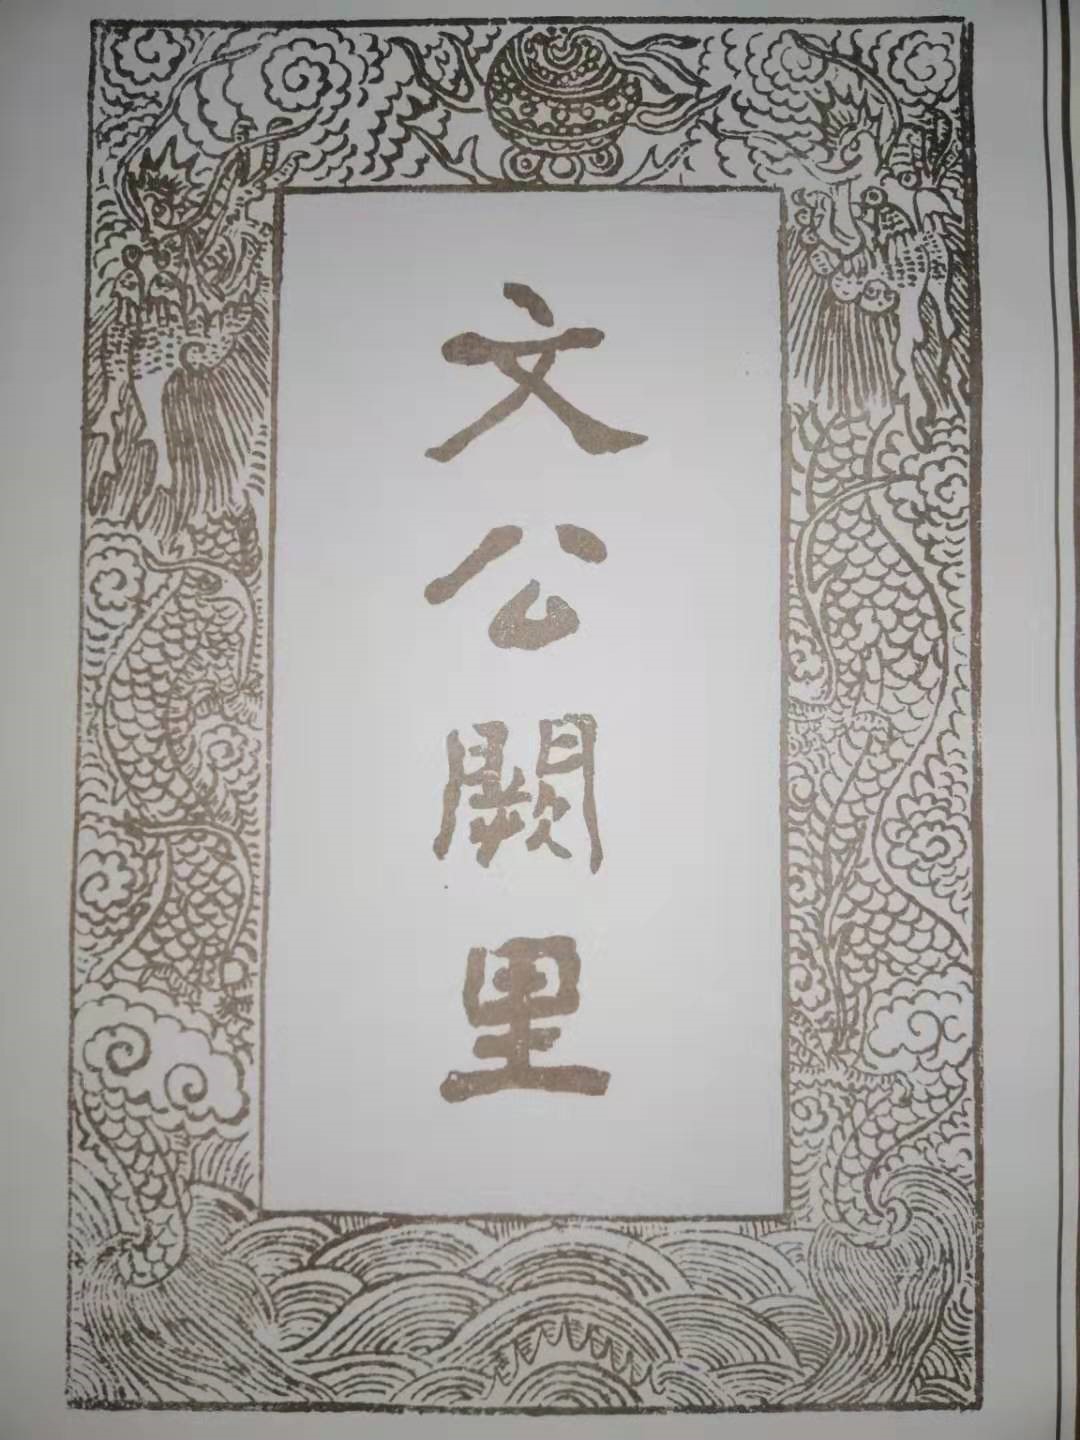 文公闕里